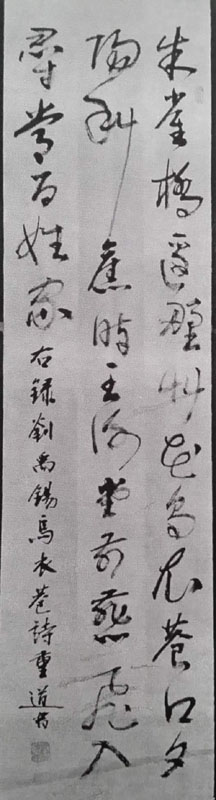 朱雀橋邊野艸花烏衣巷口夕
陽斜舊時王謝堂前燕飛入
尋常百姓家 右録劉禹錫烏衣巷詩重道